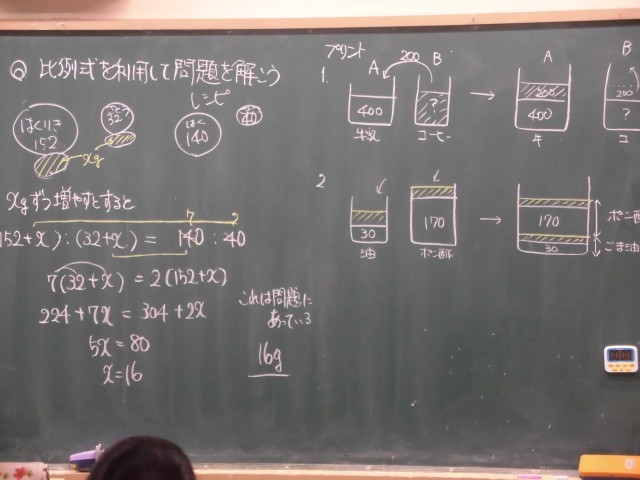 Q 比例式を利用して問題を解こう
レシピ
はくりき
152
32
xg
はく
140
40
xgずつ増やすとすると
7 2
(152+x):(32+x) = 140:40
7(32+x) = 2(152+x)
224+7x = 304+2x
5x = 80
x=16
これは問題に
あっている
16g
プリント
1.
A 200 B
400 ?
牛乳 コーヒー
→
A B
200
400
牛
200
?
コ
2
30 170
油 ポン酢
→
170
30
ポン酢
ごま油